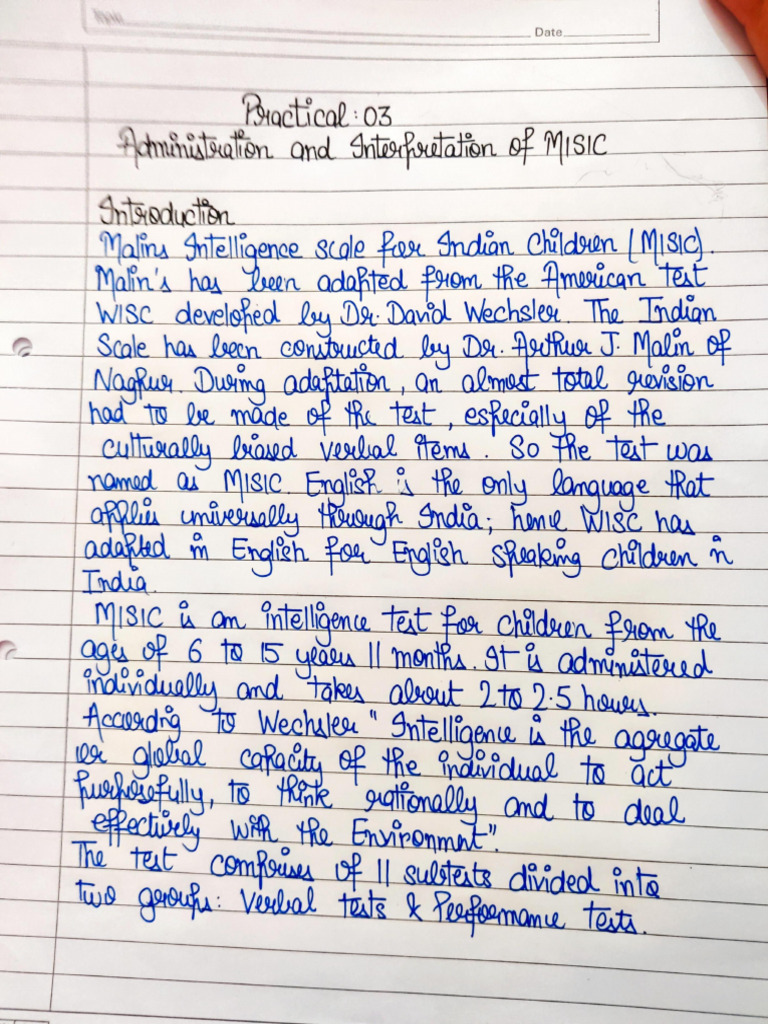 Date
Practical: 03
Administration and Interpretation of MISIC
Introduction
Malins Intelligence scale for Indian Children (MISIC).
Malin's has been adapted from the American test
WISC developed by Dr. David Wechsler. The Indian
Scale has been constructed by Dr. Arthur J. Malin of
Nagpur. During adaptation, an almost total revision
had to be made of the test, especially of the
culturally biased verbal items. So the test was
named as MISIC. English is the only language that
applies universally through India; hence WISC has
adapted in English for English speaking children in
India.
MISIC is an intelligence test for children from the
ages of 6 to 15 years 11 months. It is administered
individually and takes about 2 to 2.5 hours.
Accordig to Wechsler "Intelligence is the agregate
or global capacity of the individual to act
purposefully, to think rationally and to deal
effectively with the Environmnt".
The test comprises of 11 subtests divided into
two groups: Verbal tests & Performance tests.